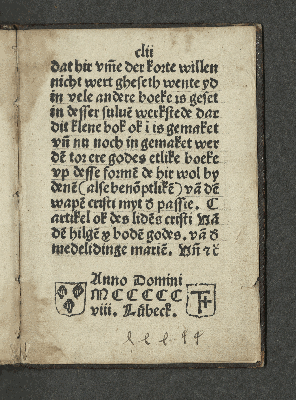 clii
dat hir vm̄e der korte willen
nicht wert gheseth wente yd
in vele andere boeke is geset
in desser suluē werkstede dar
dit klene bok ok i is gemaket
vn̄ nu noch in gemaket wer
dē tor ere godes etlike boeke
vp desse formē de hir wol by
denē (alse benōptlikē) vā dē
wapē cristi myt ď passie. C
artikel ok des lidēs cristi Vā
dē hilgē ꝫ bodē godes. vā ď
medelidinge mariē. Vn̄ ⁊c̄
Anno Domini
MCCCCC
viii. Lůbeck.